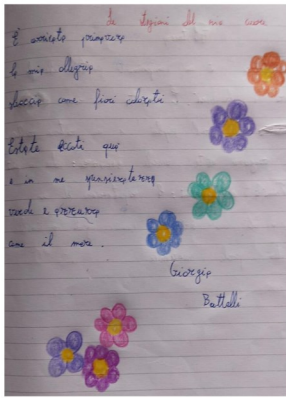 Le stagioni del mio cuore
È arrivata primavera
la mia allegria
sboccia come fiori colorati
Estate eccoti qui
e in me
verde e azzurra
come il mare.
Giorgia
Battelli